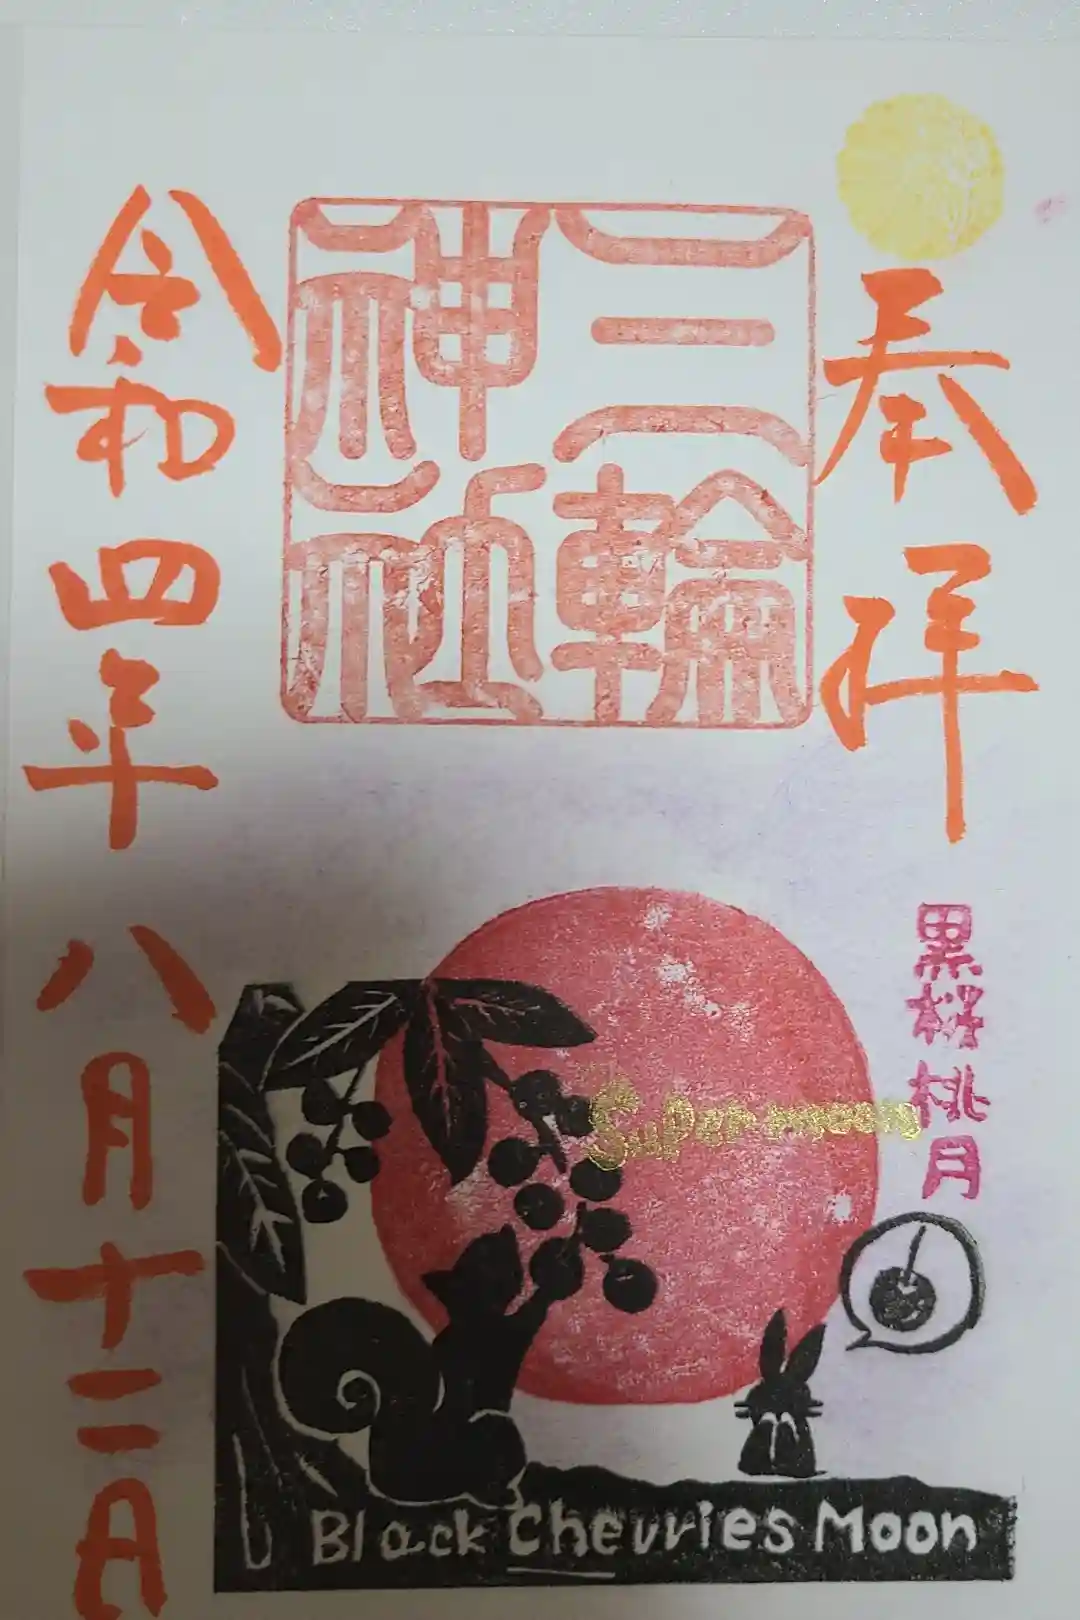 奉拝
三輪
神社
令和四年八月十二日
黒桜桃月
Super moon
Black Cherries Moon